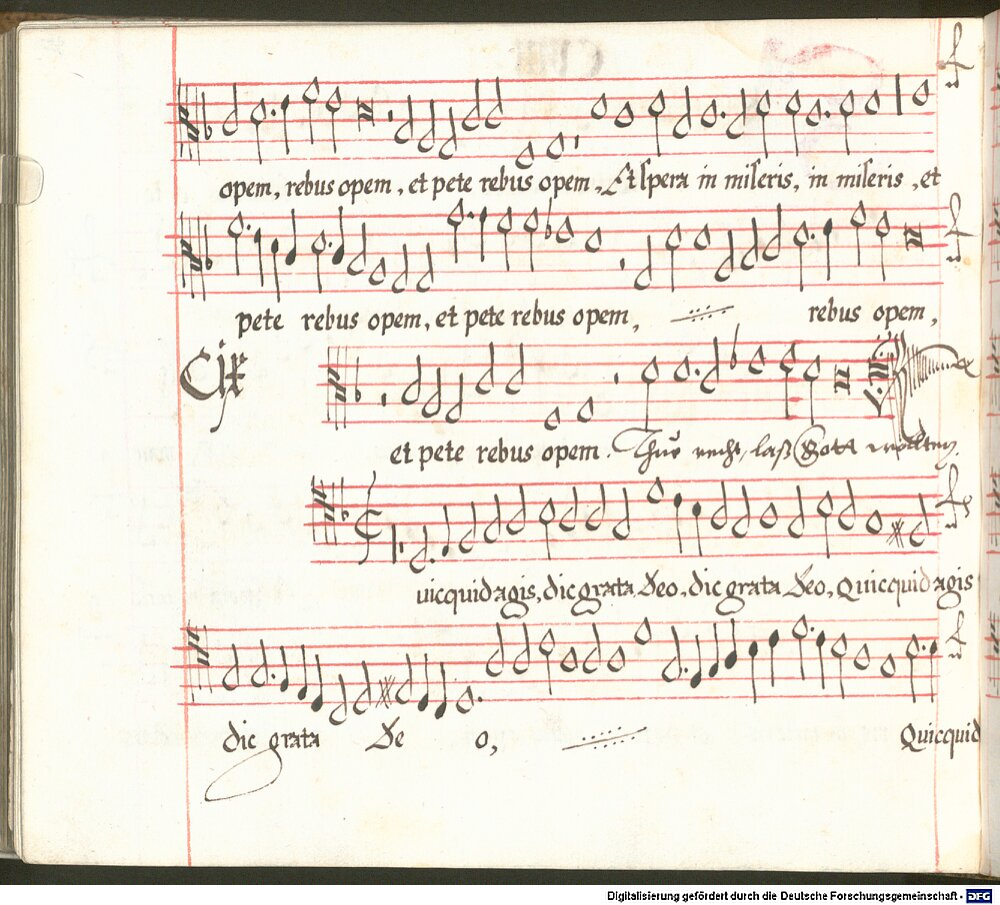 opem, rebus opem, et pete rebus opem, Et spera in miseris, in miseris, et
pete rebus opem, et pete rebus opem, rebus opem,
Cix
et pete rebus opem. Thue recht, laß Gott
uicquid agis, dic grata Deo, dic grata Deo, Quicquid agis
dic grata De o, Quicquid
Digitalisierung gefördert durch die Deutsche Forschungsgemeinschaft - DFG